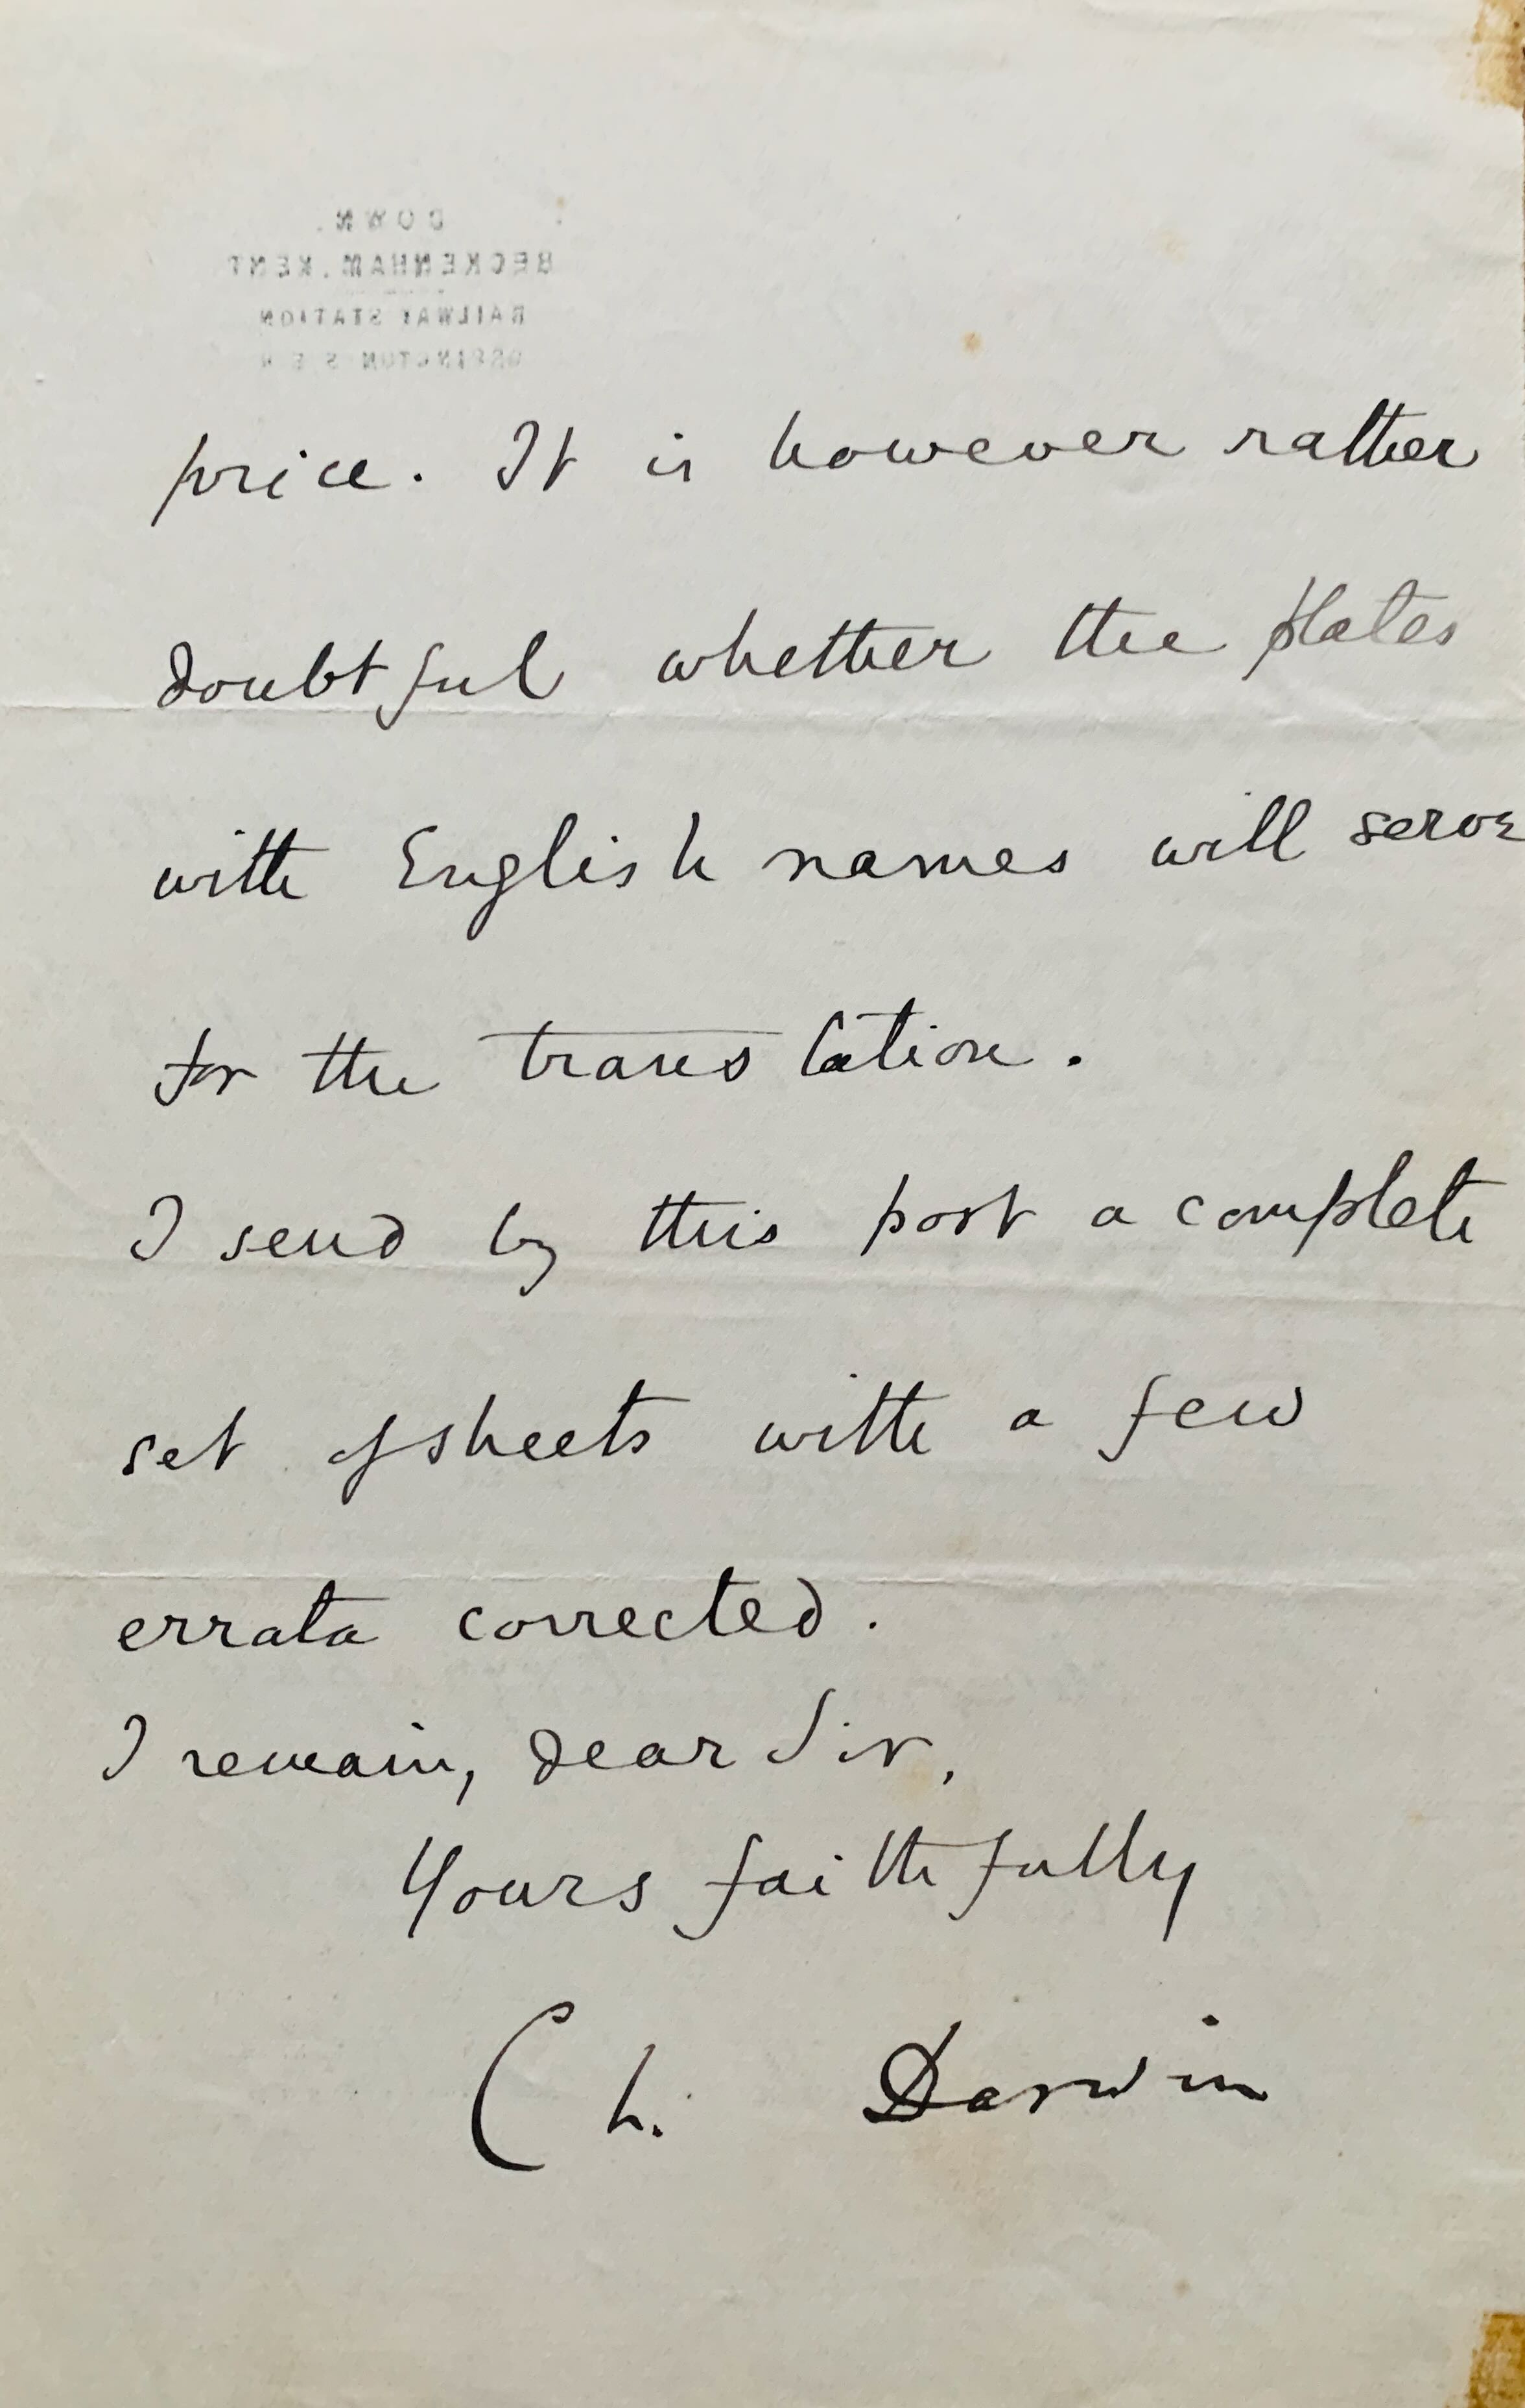 DOWN.
BECKENHAM. KENT
RAILWAY STATION
ORPINGTON S E R
price. It is however rather
doubtful whether the plates
with English names will serve
for the translation.
I send by this post a complete
set of sheets with a few
errata corrected.
I remain, dear Sir,
Yours faithfully
Ch. Darwin